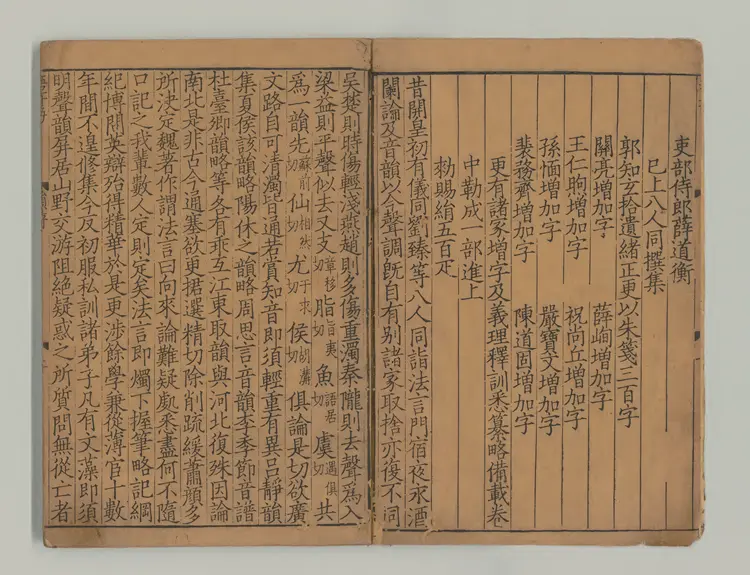 吏部侍郎薛道衡
已上八人同撰集
郭知玄拾遺緒正更以朱箋三百字
關亮增加字 薛峋增加字
王仁昫增加字 祝尚丘增加字
孫愐增加字 嚴寶文增加字
裴務齊增加字 陳道固增加字
更有諸家增字及義理釋訓悉纂略備載卷
中勒成一部進上
勑賜絹五百疋
昔開皇初有儀同劉臻等八人同詣法言門宿夜永酒
闌論及音韻以今聲調既自有別諸家取捨亦復不同
吳楚則時傷輕淺燕趙則多傷重濁秦隴則去聲爲入
梁益則平聲似去又支章移切脂旨夷切魚語居切虞遇俱切共
爲一韻先蘇前切仙相然切尤于求切侯胡溝切俱論是切欲廣
文路自可清濁皆通若賞知音即須輕重有異呂靜韻
集夏侯該韻略陽休之韻略周思言音韻李季節音譜
杜臺卿韻略等各有乖互江東取韻與河北復殊因論
南北是非古今通塞欲更捃選精切除削疏緩蕭顏多
所決定魏著作謂法言曰向來論難疑處悉盡何不隨
口記之我輩數人定則定矣法言即燭下握筆略記綱
紀博問英辯殆得精華於是更涉餘學兼從薄官十數
年間不遑修集今反初服私訓諸弟子凡有文藻即須
明聲韻屏居山野交游阻絕疑惑之所質問無從亡者